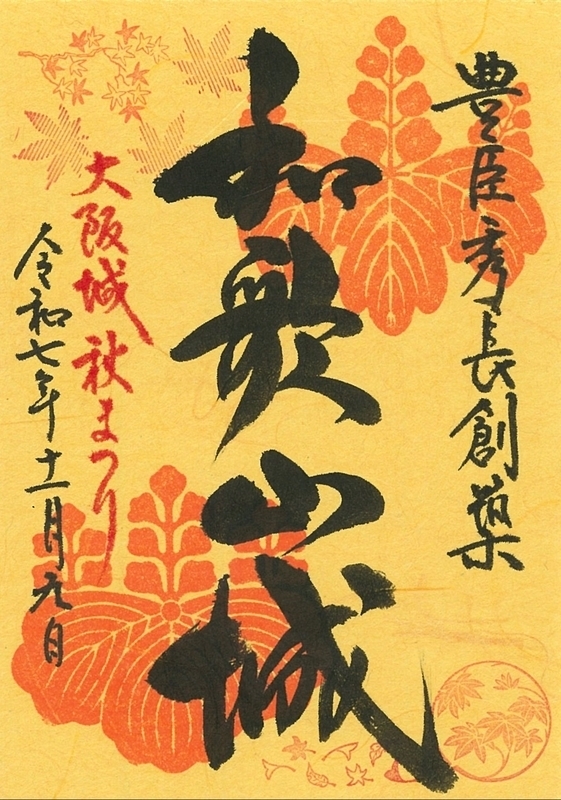 豊臣秀長創築
和歌山城
大阪城 秋まつり
令和七年十一月九日